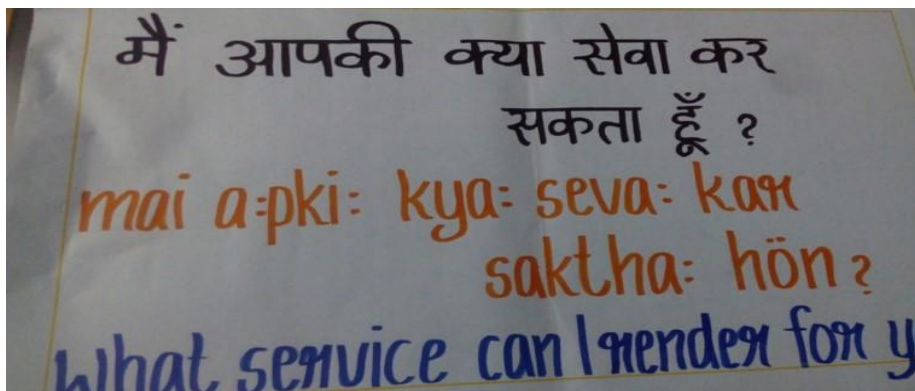 मैं आपकी क्या सेवा कर
सकता हूँ ?
mai a:pki: kya: seva: kar
saktha: hön?
What service can I render for y